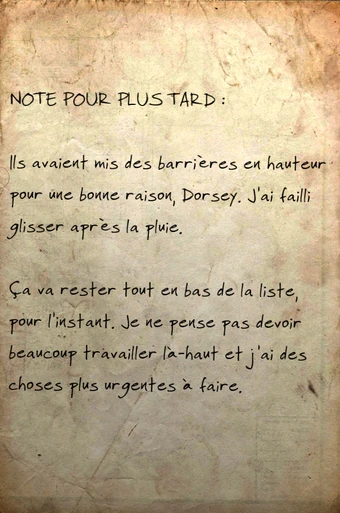 NOTE POUR PLUS TARD :
Ils avaient mis des barrières en hauteur
pour une bonne raison, Dorsey. J'ai failli
glisser après la pluie.
Ça va rester tout en bas de la liste,
pour l'instant. Je ne pense pas devoir
beaucoup travailler là-haut et j'ai des
choses plus urgentes à faire.